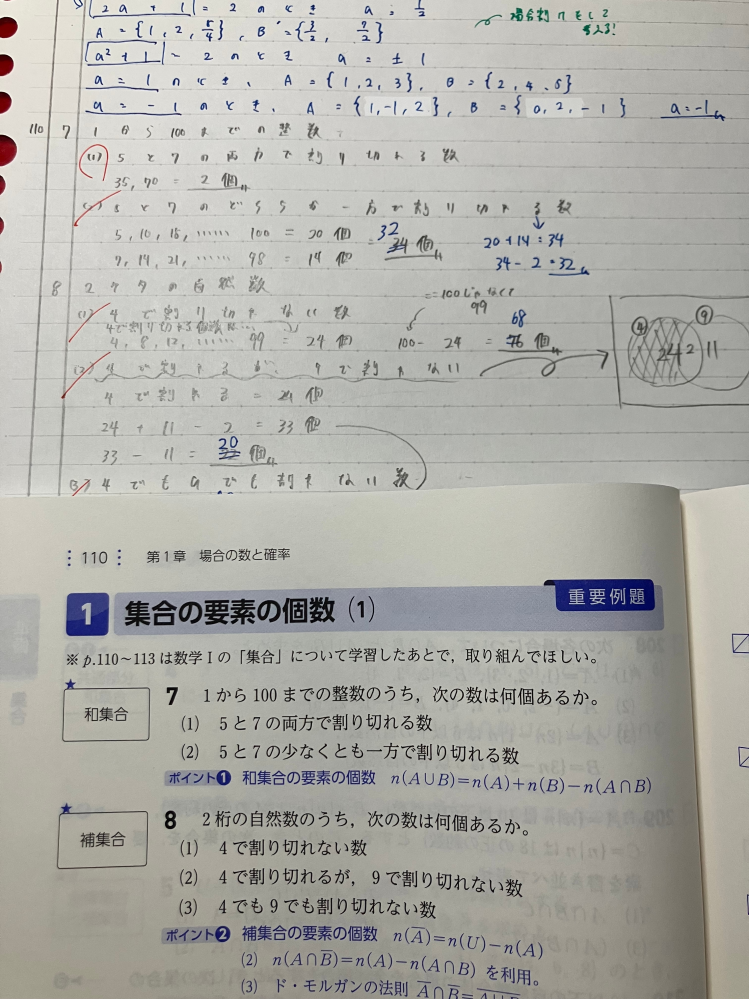 2a + 1 = 2 のとき a = 1/2
A = {1, 2, 5/4}, B = {3/2, 7/2}
場合割りをして考える!
a² + 1 = 2 のとき a = ±1
a = 1 のとき、A = {1, 2, 3}, B = {2, 4, 5}
a = -1 のとき、A = {1, -1, 2}, B = {0, 2, -1} a = -1
110 7 1から100までの整数
(1) 5と7の両方で割り切れる数
35, 70 = 2個
(2) 5と7のどちらか一方が割り切れる数
5, 10, 15, …… 100 = 20個 = 32 34 個
20 + 14 = 34
7, 14, 21, …… 98 = 14個
34 - 2 = 32
8 2ケタの自然数
100じゃなくて
99
(1) 4で割り切れない数
4で割り切れる個数は…
4, 8, 12, …… 99 = 24個 100 - 24 = 68 76 個
④ ⑨
24 2 11
(2) 4で割れるが、9で割れない
4で割れる = 24個
24 + 11 - 2 = 33個
33 - 11 = 20 22 個
(3) 4でも9でも割れない数
110 第1章 場合の数と確率
1 集合の要素の個数(1) 重要例題
※ p.110~113は数学Ⅰの「集合」について学習したあとで,取り組んでほしい。
★ 和集合
7 1から100までの整数のうち,次の数は何個あるか。
(1) 5と7の両方で割り切れる数
(2) 5と7の少なくとも一方で割り切れる数
ポイント❶ 和集合の要素の個数 n(A∪B)=n(A)+n(B)-n(A∩B)
★ 補集合
8 2桁の自然数のうち,次の数は何個あるか。
(1) 4で割り切れない数
(2) 4で割り切れるが,9で割り切れない数
(3) 4でも9でも割り切れない数
ポイント❷ 補集合の要素の個数 n(A̅)=n(U)-n(A)
(2) n(A∩B̅)=n(A)-n(A∩B) を利用。
(3) ド・モルガンの法則 A̅∩B̅=